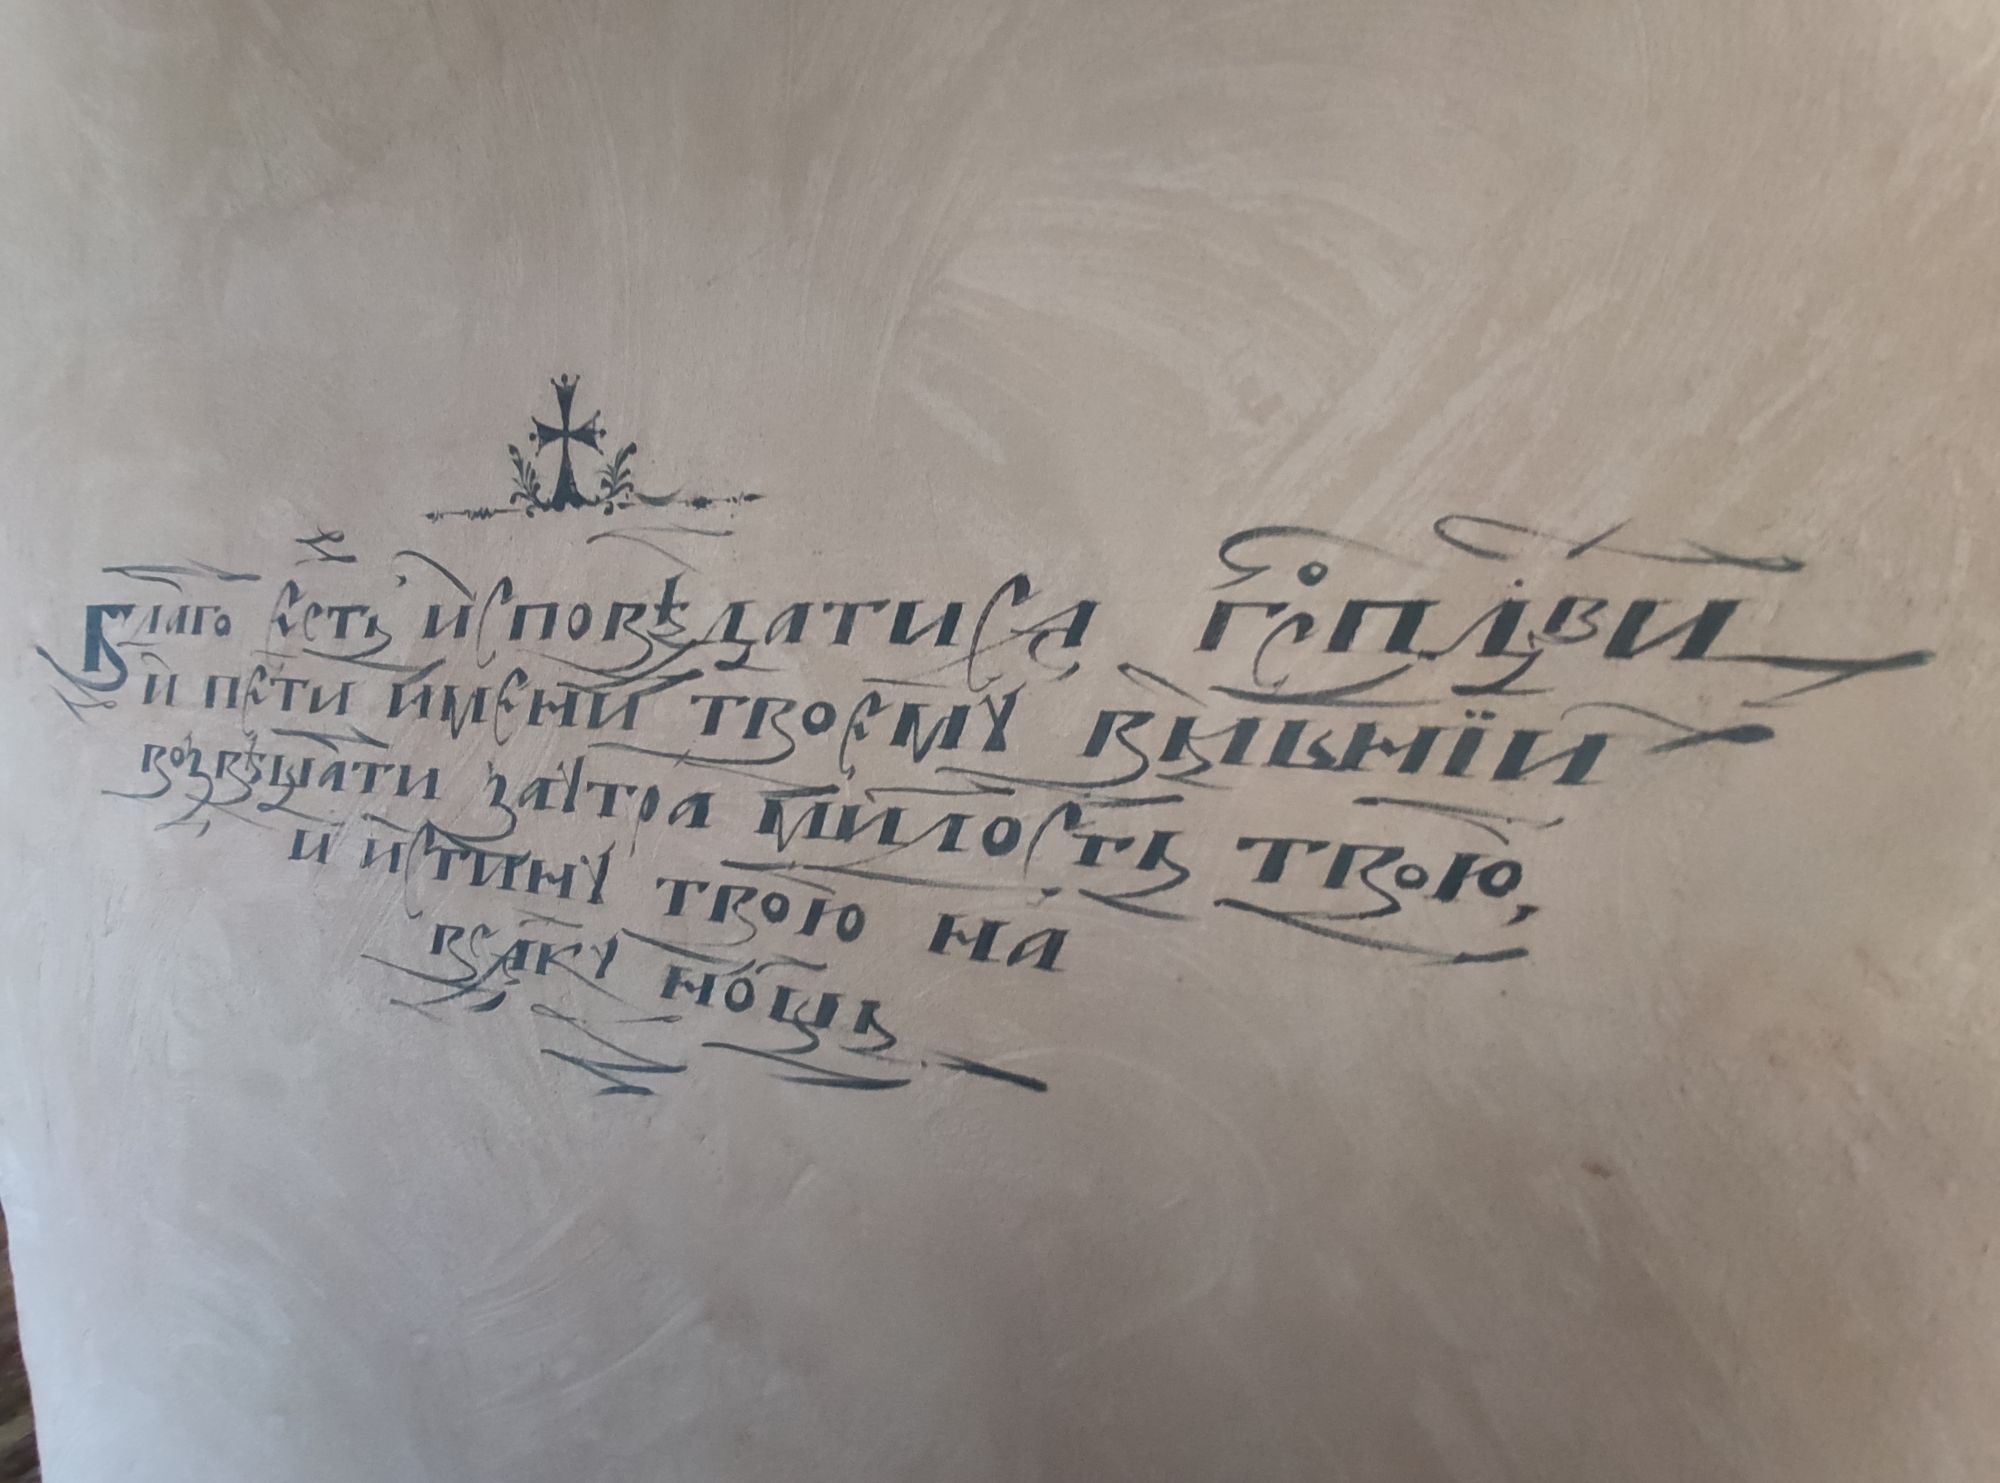 Благо єсть исповѣдатися Гсподви
и пѣти имени твоему вышнїи
возвѣщати заутра милость твою,
и истину твою на
всяку нощь.